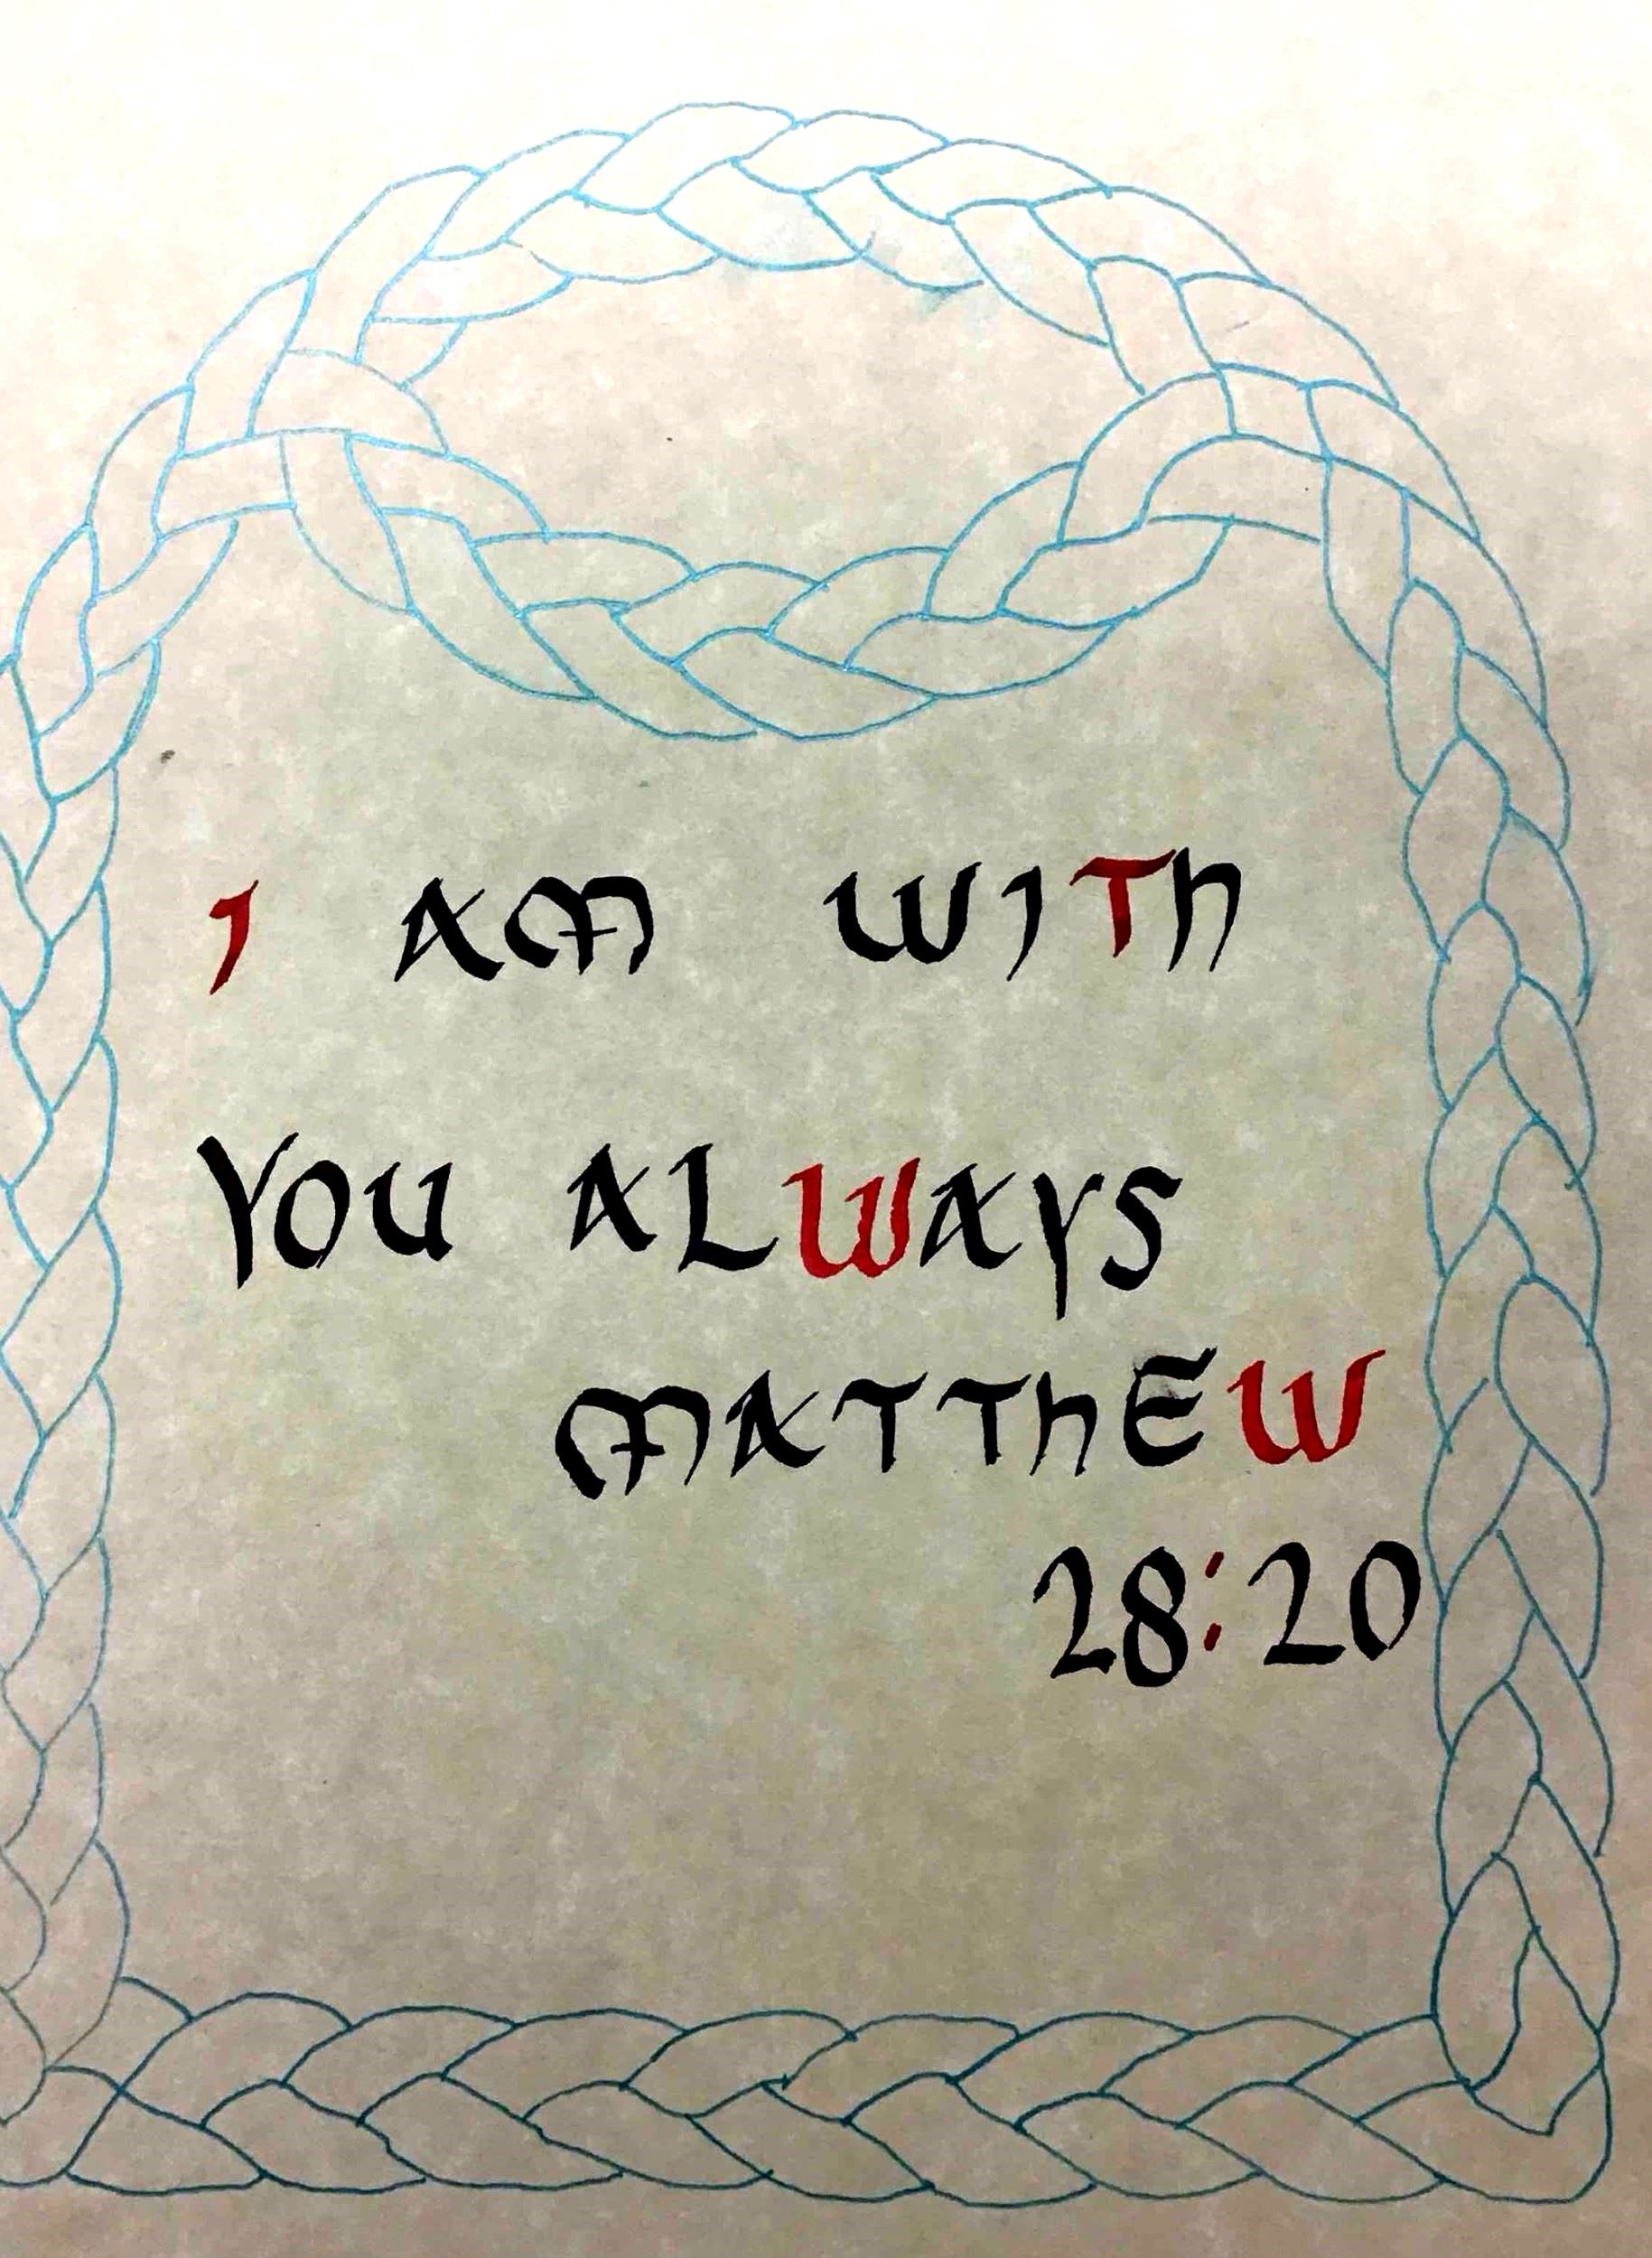 I AM WITH
YOU ALWAYS
MATTHEW
28:20